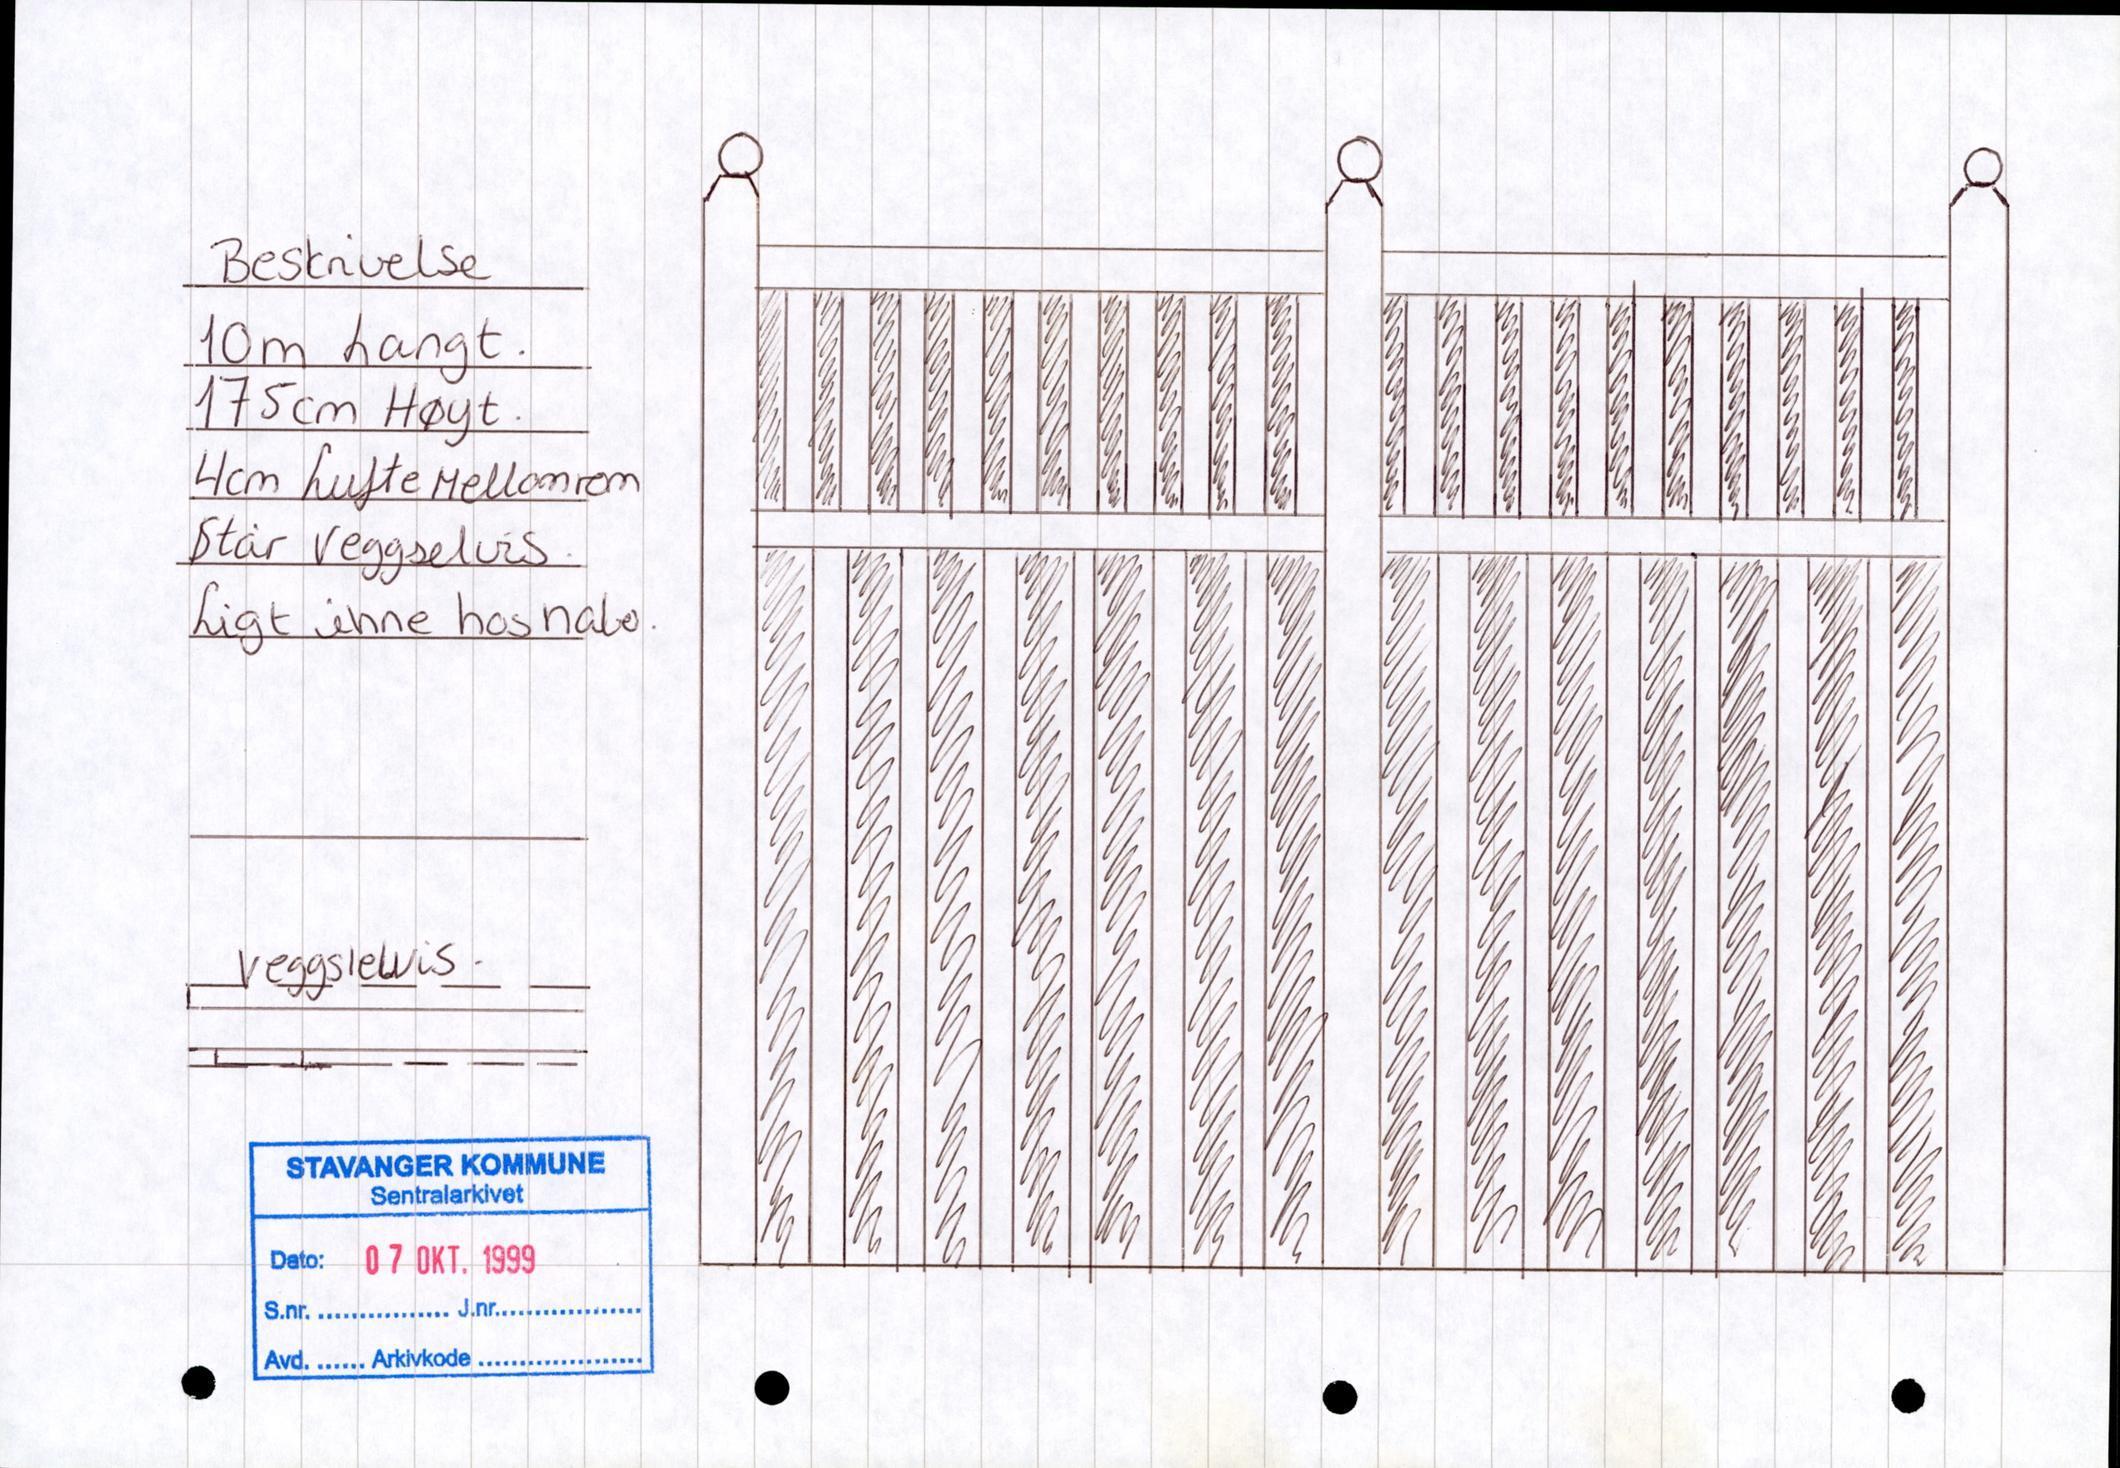 Beskrivelse
10m Langt.
175cm Høyt.
4cm Lufte Mellomrom
Står Veggselvis.
Ligt inne hos nabo.
Veggslewis.
STAVANGER KOMMUNE
Sentralarkivet
Dato: 07 OKT. 1999
S.nr. ................ J.nr..................
Avd. ...... Arkivkode ....................